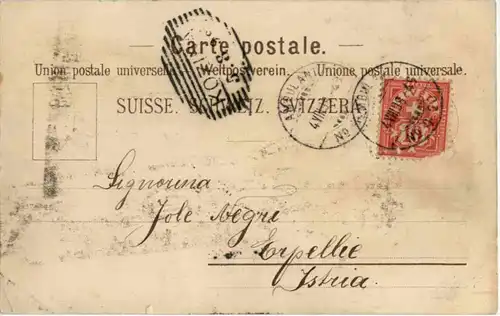 Carte postale.
Union postale universelle. — Weltpostverein. — Unione postale universale.
SUISSE. SCHWEIZ. SVIZZERA.
AMBULANT
4 VIII
No
Signorina
Jole Negri
Erpellie
Istria.